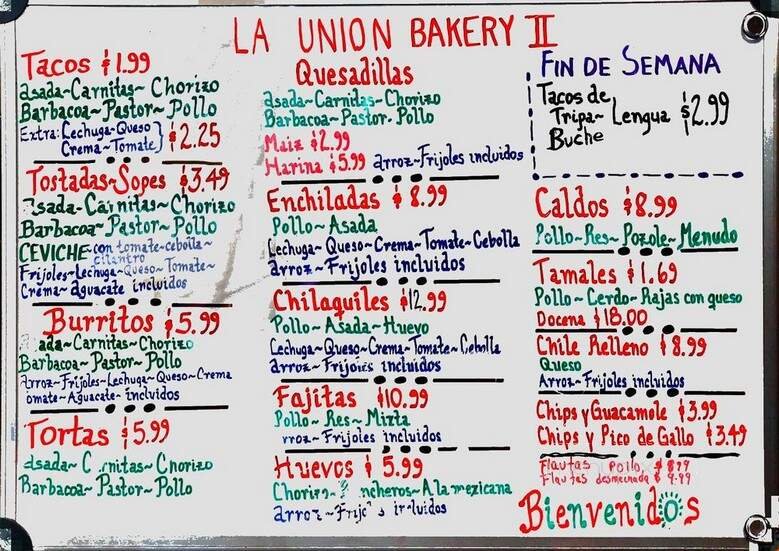 LA UNION BAKERY II
Tacos $1.99
Asada~Carnitas~Chorizo
Barbacoa~Pastor~Pollo
Extra: Lechuga~Queso
Crema~Tomate} $2.25
Tostadas~Sopes $3.49
Asada~Carnitas~Chorizo
Barbacoa~Pastor~Pollo
CEVICHE con tomate~cebolla~
cilantro
Frijoles~Lechuga~Queso~Tomate~
Crema~aguacate incluidos
Burritos $5.99
ada~Carnitas~Chorizo
Barbacoa~Pastor~Pollo
Arroz~Frijoles~Lechuga~Queso~Crema
omate~Aguacate~incluidos
Tortas $5.99
Asada~C rnitas~Chorizo
Barbacoa~Pastor~Pollo
Quesadillas
Asada~Carnitas~Chorizo
Barbacoa~Pastor~Pollo
Maiz $2.99
Harina $5.99 arroz~Frijoles incluidos
Enchiladas $8.99
Pollo~Asada
Lechuga~Queso~Crema~Tomate~Cebolla
arroz~Frijoles incluidos
Chilaquiles $12.99
Pollo~Asada~Huevo
Lechuga~Queso~Crema~Tomate~Cebolla
arroz~Frijoles incluidos
Fajitas $10.99
Pollo~Res~Mixta
rroz~Frijoles incluidos
Huevos $5.99
Chorizo~ ncheros~A la mexicana
arroz~Frijoles incluidos
FIN DE SEMANA
Tacos de
Tripa~Lengua $2.99
Buche
Caldos $8.99
Pollo~Res~Pozole~Menudo
Tamales $1.69
Pollo~Cerdo~Rajas con queso
Docena $18.00
Chile Relleno $8.99
Queso
Arroz~Frijoles incluidos
Chips y Guacamole $3.99
Chips y Pico de Gallo $3.49
Flautas Pollo
Flautas desmechada
Bienvenidos